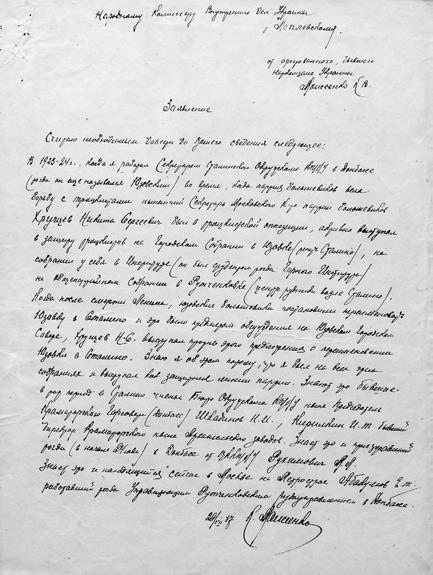 Народному Комиссару Внутренних Дел Украины
т. Леплевскому
от арестованного, бывшего
Наркомзема Украины
Моисеенко К. В.
Заявление
Считаю необходимым довести до Вашего сведения следующее:
В 1923-24 г., когда я работал Секретарем Сталинского Окружкома КП/б/У в Донбасе
(тогда он еще назывался Юзовский) во время, когда партия большевиков вела
борьбу с троцкистами нынешний Секретарь Московского К-та партии большевиков
Хрущев Никита Сергеевич был в троцкистской оппозиции, активно выступал
в защиту троцкизма на Городском Собрании в Юзовке (теперь Сталино), на
собрании у себя в Институте (он был студентом тогда Горного Института)
на Собрании в Рутченковке (центр рудника возле Сталино).
Когда после смерти Ленина, юзовские большевики постановили переименовать
Юзовку в Сталино и это было предметом обсуждения на Юзовском Городском
Совете, Хрущев Н-С. выступал против этого предложения о переименовании
Юзовки в Сталино. Знаю я об этом потому, что я был на всех этих
собраниях и выступал как защитник линии партии. Знают это бывшие
в тот период в Сталино члены Бюро Окружкома КП/б/У ныне Председатель
Краматорского Горсовета (Донбасс) Швайцов Н.И., Кириленко И.Т. бывший
директор Краматорского ныне заводов. Знает это и приезжавший
тогда (в начале 24 года) в Донбасс от ЦККП/б/У Рухимович М.Л.
Знает это и находящийся сейчас в Москве на Метрострое Абакумов Е.Т.
работавший тогда Управляющим Рутченковским рудоуправлением в Донбасе.
37 К. Моисеенко